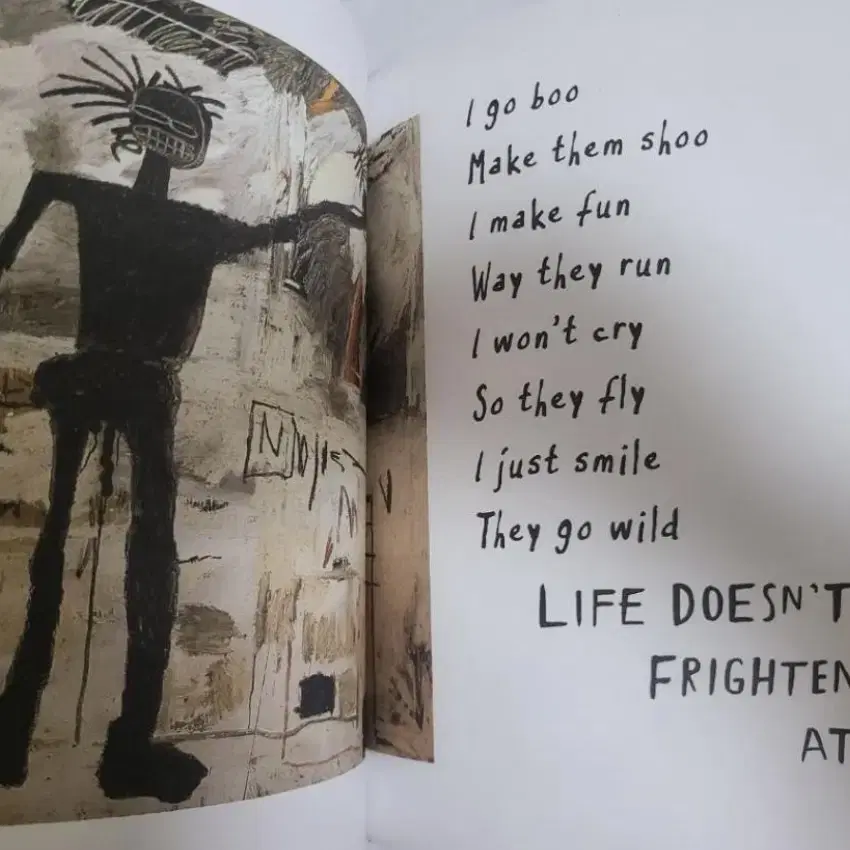 I go boo
Make them shoo
I make fun
Way they run
I won't cry
So they fly
I just smile
They go wild
LIFE DOESN'T
FRIGHTEN
AT